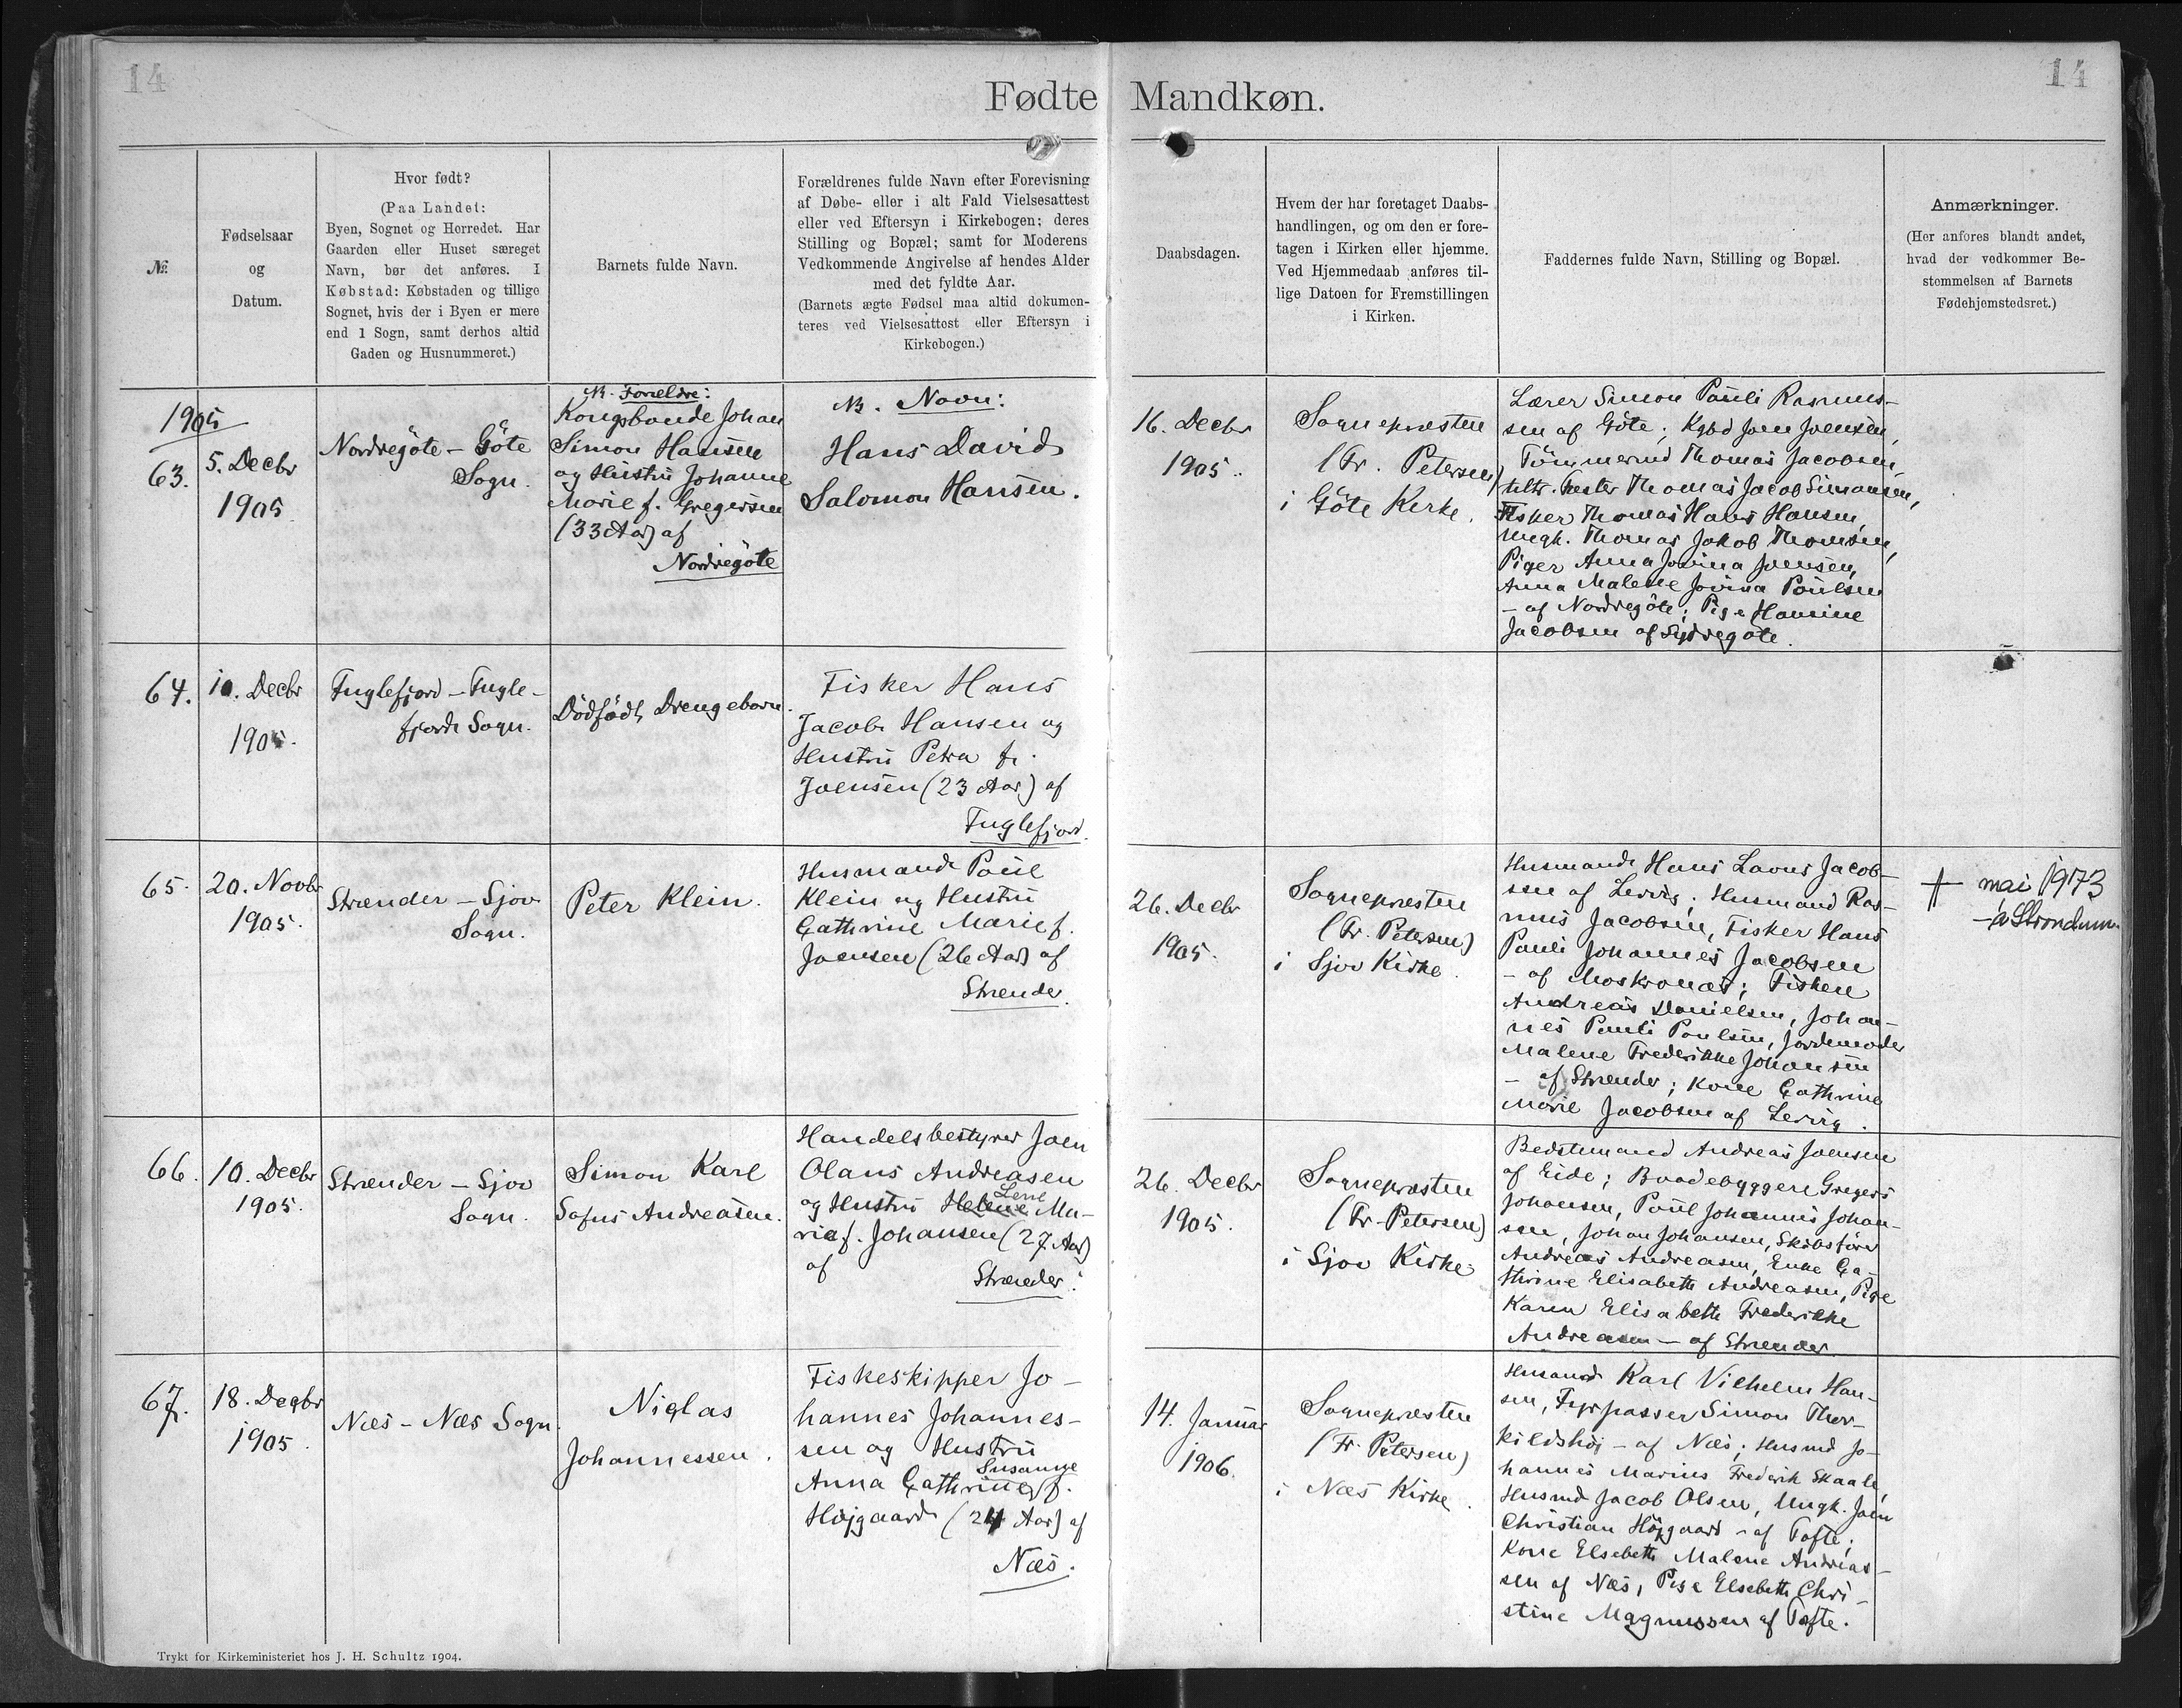 14
14
Fødte Mandkøn.
№
Fødselsaar
og
Datum.
Hvor født?
(Paa Landet:
Byen, Sognet og Herredet. Har
Gaarden eller Huset særeget
Navn, bør det anføres. I
Købstad: Købstaden og tillige
Sognet, hvis der i Byen er mere
end 1 Sogn, samt derhos altid
Gaden og Husnummeret.)
Barnets fulde Navn.
Forældrenes fulde Navn efter Forevisning
af Døbe- eller i alt Fald Vielsesattest
eller ved Eftersyn i Kirkebogen; deres
Stilling og Bopæl; samt for Moderens
Vedkommende Angivelse af hendes Alder
med det fyldte Aar.
(Barnets ægte Fødsel maa altid dokumen-
teres ved Vielsesattest eller Eftersyn i
Kirkebogen.)
Daabsdagen.
Hvem der har foretaget Daabs-
handlingen, og om den er fore-
tagen i Kirken eller hjemme.
Ved Hjemmedaab anføres til-
lige Datoen for Fremstillingen
i Kirken.
Faddernes fulde Navn, Stilling og Bopæl.
Anmærkninger.
(Her anføres blandt andet,
hvad der vedkommer Be-
stemmelsen af Barnets
Fødehjemstedsret.)
1905
63.
5. Decbr
1905
Nordregöte – Göte
Sogn.
NB. Forældre:
Kongsbonde Johan
Simon Hansen
og Hustru Johanne
Marie f. Gregersen
(33 Aar) af
Nordregöte
NB. Navn:
Hans David
Salomon Hansen.
16. Decbr
1905.
Sognepræsten
(Fr. Petersen)
i Göte Kirke.
Lærer Simon Pauli Rasmus-
sen af Göte; Kgbd Joen Joensen,
Tömmermd Thomas Jacobsen,
Thomas Jacob Simonsen,
Fisker Thomas Hans Hansen,
Ungk. Thomas Jakob Thomsen,
Piger Anna Jovina Joensen,
Anna Malene Jovina Poulsen
– af Nordregöte; Pige Hansine
Jacobsen af Sydregöte.
64.
10. Decbr
1905.
Fuglefjord – Fugle-
fjords Sogn.
Dödfödt Drengebarn.
Fisker Hans
Jacob Hansen og
Hustru Petra f.
Joensen (23 Aar) af
Fuglefjord.
65.
20. Novbr
1905.
Strænder – Sjov
Sogn.
Peter Klein.
Husmand Poul
Klein og Hustru
Cathrine Marie f.
Joensen (26 Aar) af
Strænder.
26. Decbr
1905.
Sognepræsten
(Fr. Petersen)
i Sjov Kirke.
Husmand Hans Jacob-
sen af Lervig; Husmand Ras-
mus Jacobsen, Fisker Hans
Pauli Johannes Jacobsen
– af Moskronæs; Fiskere
Andreas Danielsen, Johan-
nes Pauli Poulsen, Jordemoder
Malene Frederikke Johansen
– af Strænder; Kone Cathrine
Marie Jacobsen af Lervig.
† mai 1973
– á Strondum.
66.
10. Decbr
1905.
Strænder – Sjov
Sogn.
Simon Karl
Sofus Andreasen.
Handelsbestyrer Joen
Olaus Andreasen
Lene
og Hustru Helene Ma-
rie f. Johansen (27 Aar)
af
Strænder.
26. Decbr
1905.
Sognepræsten
(Fr. Petersen)
i Sjov Kirke.
Bedstemand Andreas Joensen
af Eide; Baadebyggere Gregers
Johansen, Poul Johannes Johan-
sen, Johan Johansen, Skibsförer
Andreas Andreasen, Enke Ca-
thrine Elisabeth Andreasen, Pige
Karen Elisabeth Frederikke
Andreasen – af Strænder.
67.
18. Decbr
1905.
Næs – Næs Sogn.
Niglas
Johannessen.
Fiskeskipper Jo-
hannes Johannes-
sen og Hustru
Susanne
Anna Cathrine f.
Höjgaard (24 Aar) af
Næs.
14. Januar
1906.
Sognepræsten
(Fr. Petersen)
i Næs Kirke.
Husmand Karl Vilhelm Han-
sen, Fyrpasser Simon Thor-
kildshöj – af Næs; Husmd Jo-
hannes Marius Frederik Skaale,
Husmd Jacob Olsen, Ungk. Joen
Christian Höjgaard – af Tofte;
Kone Elsebeth Malene Andreas-
sen af Næs, Pige Elsebeth Chri-
stine Magnussen af Tofte.
Trykt for Kirkeministeriet hos J. H. Schultz 1904.